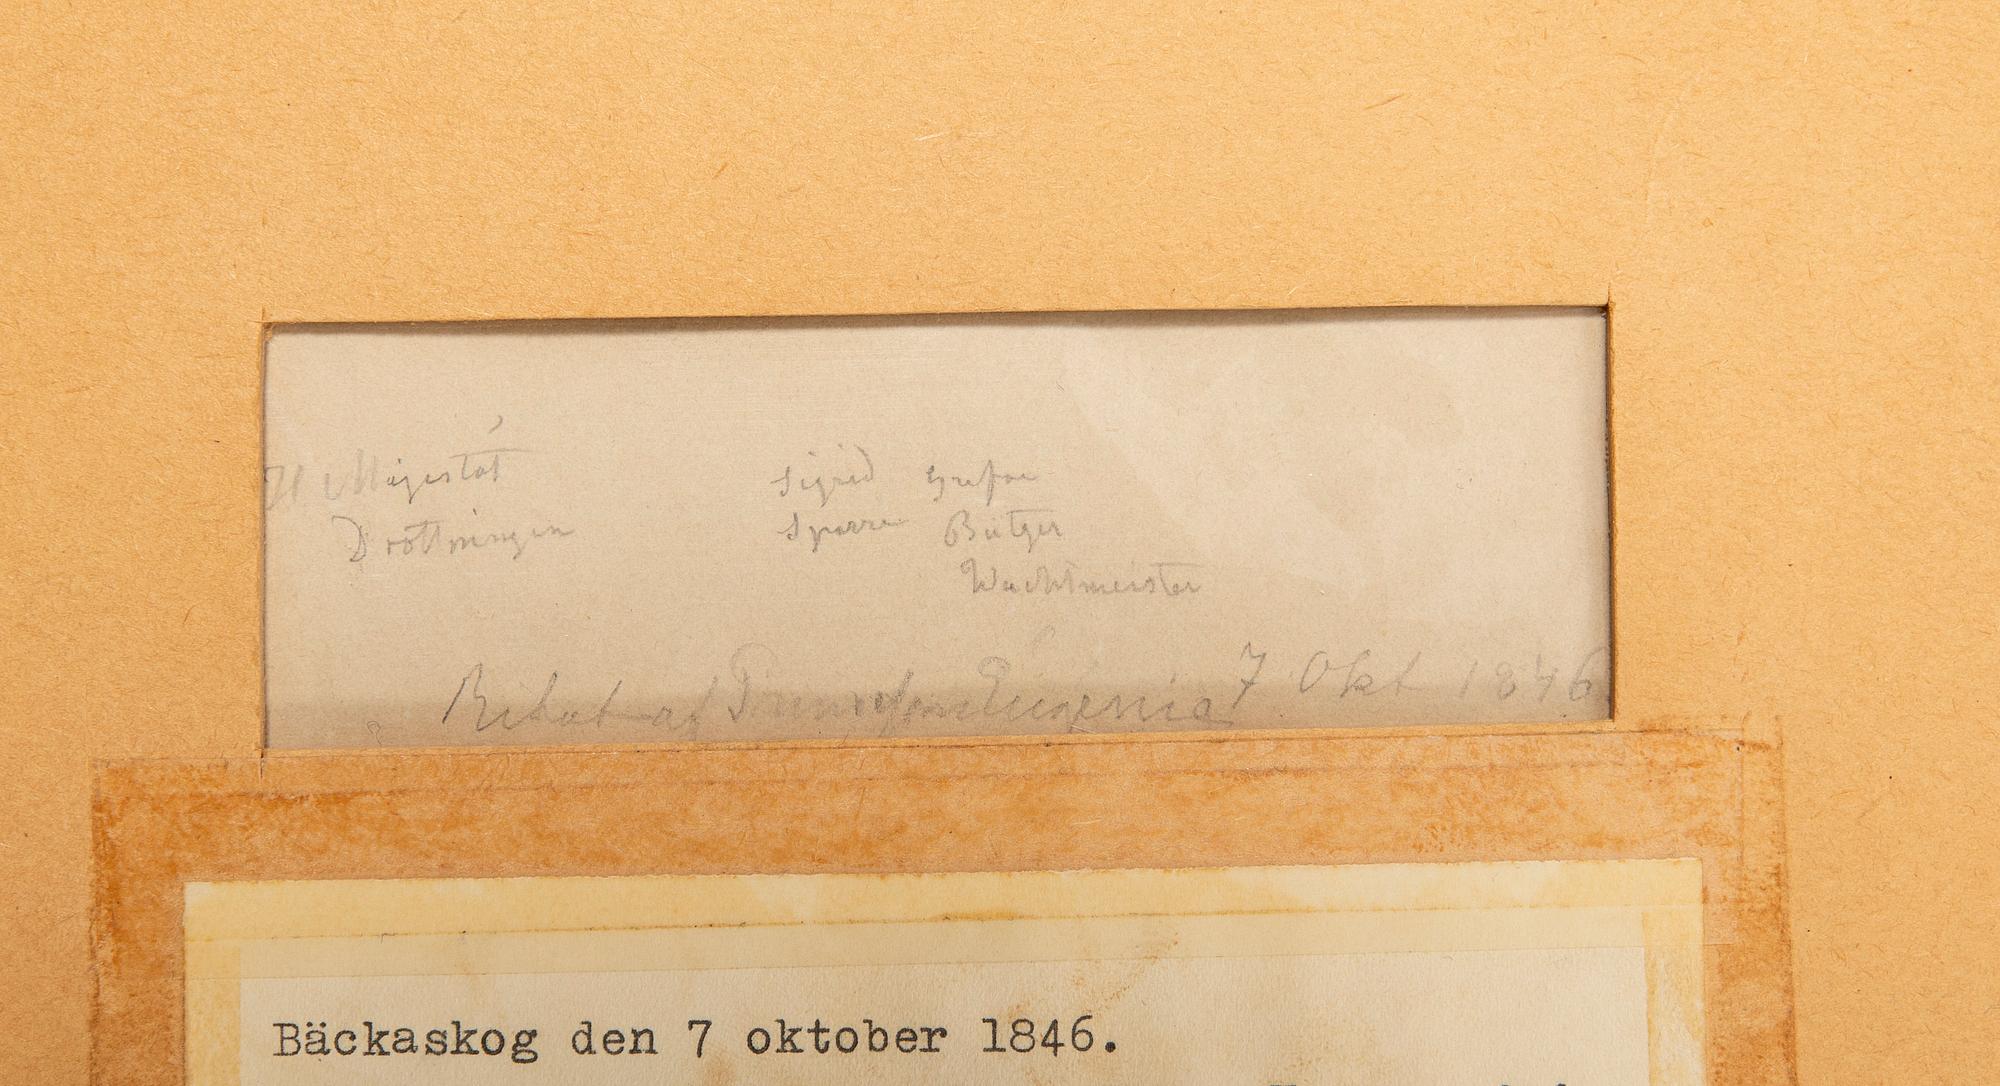 H Majestät
Drottningen
Sigrid
Sparre
Grefve
Bütger
Wachtmeister
Ritat af Prinsessan Eugenie 7 Okt 1846
Bäckaskog den 7 oktober 1846.